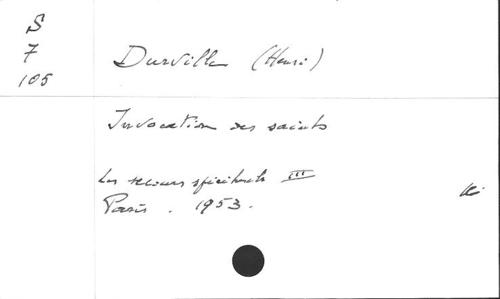 S
7
105
Durville (Henri)
Invocation des saints
Les secours spirituels III
Paris. 1953.